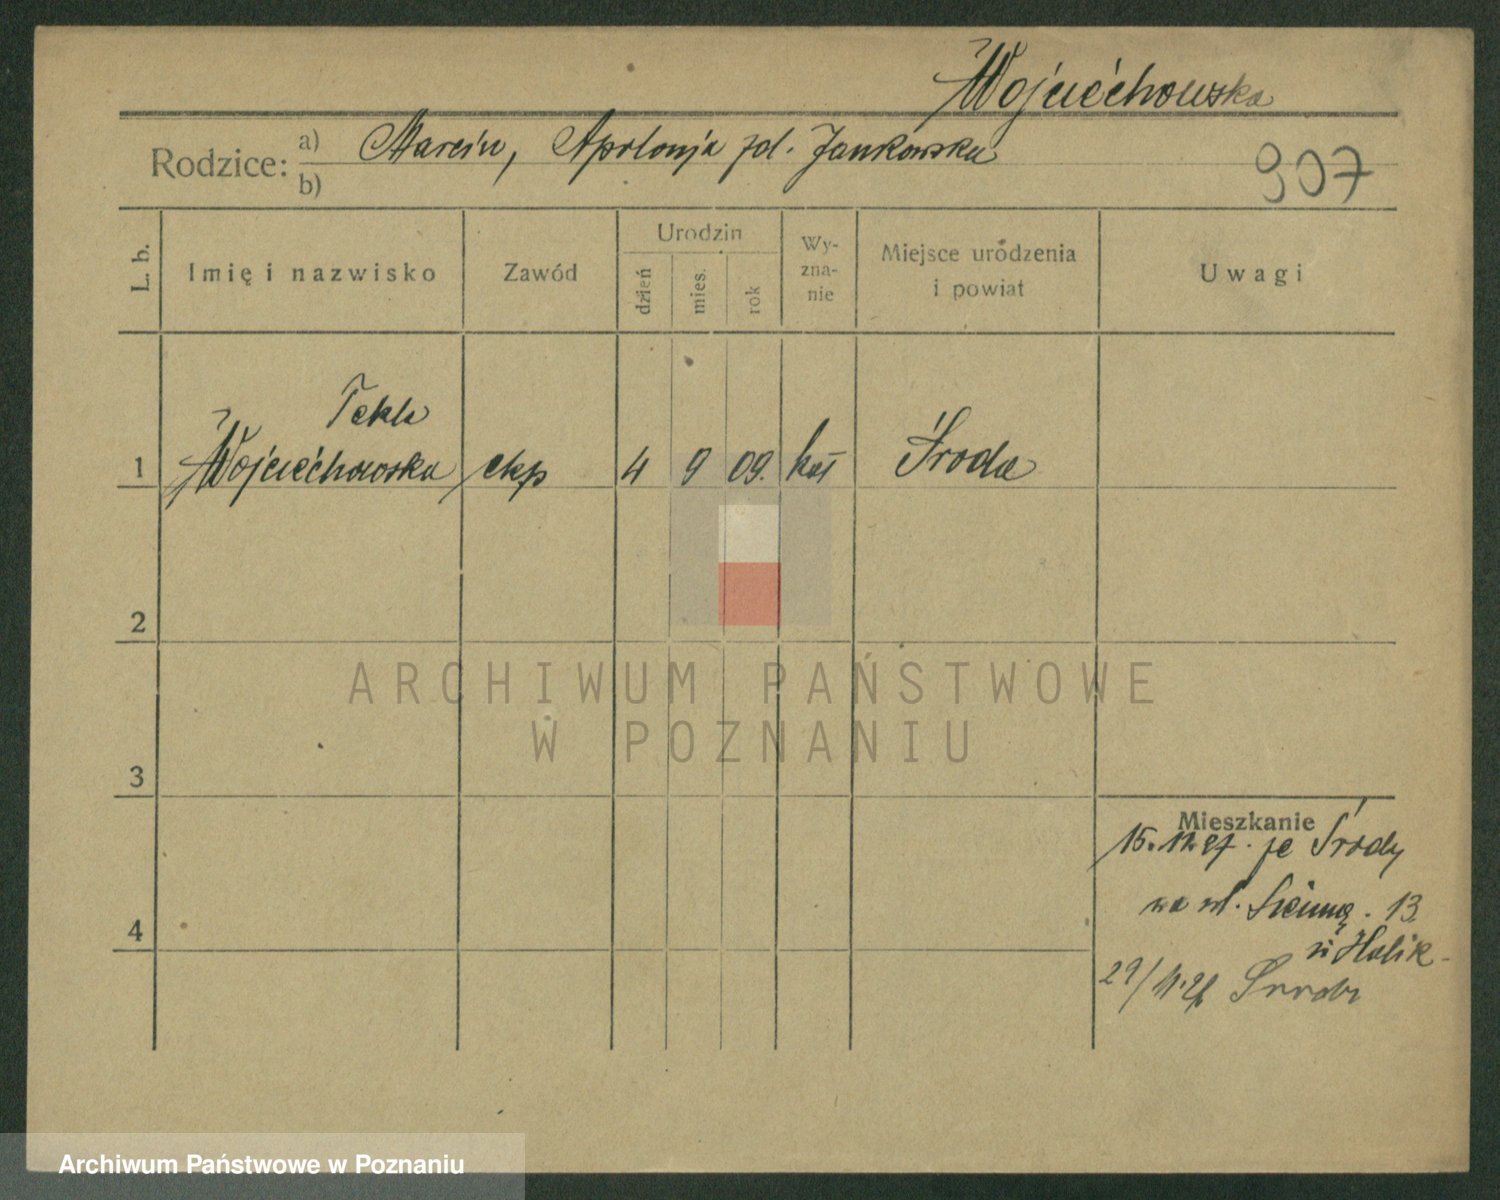 Wojciechowska
Rodzice: a) Marcin, Apolonja zd. Jankowska
b)
907
L. b. Imię i nazwisko Zawód Urodzin dzień mies. rok Wy-zna-nie Miejsce urodzenia i powiat Uwagi
Tekla
1 Wojciechowska ekp 4 9 09. kat Środa
2
ARCHIWUM PAŃSTWOWE
W POZNANIU
3
Mieszkanie
15. 11. 27. ze Środy
na ul. Sienną. 13
4
u Halik-
29/11.
Archiwum Państwowe w Poznaniu